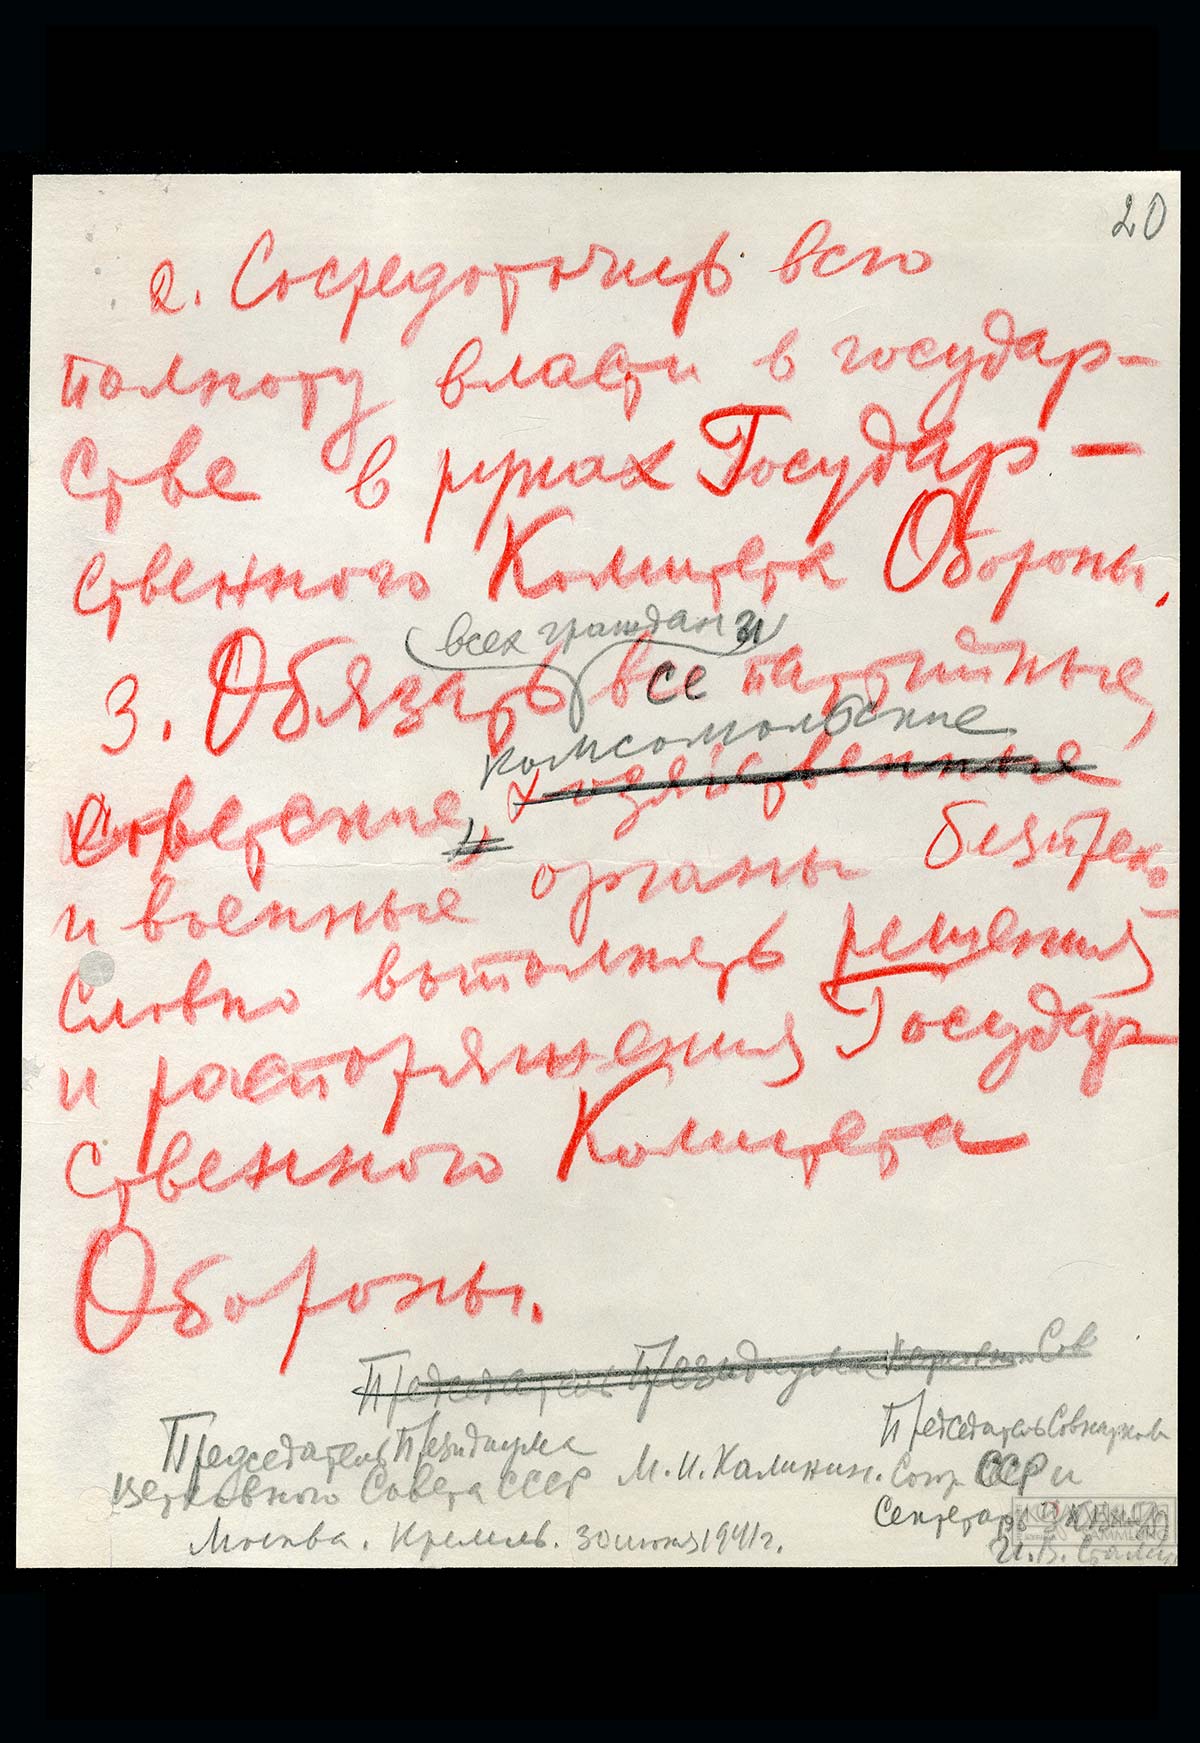 20
2. Сосредоточить всю
полноту власти в государ-
стве в руках Государ-
ственного Комитета Обороны.
всех граждан и
3. Обязать все партийные,
комсомольские
советские, хозяйственные
и военные органы безпреко-
словно выполнять решения
и распоряжения Государ-
ственного Комитета
Обороны.
Председатель Президиума Верховного Сов
Председатель Президиума
Верховного Совета СССР
М.И. Калинин.
Председатель Совнаркома
Союза ССР и
Секретарь ЦК ВКП(б)
И.В. Сталин
Москва. Кремль. 30 июня 1941 г.